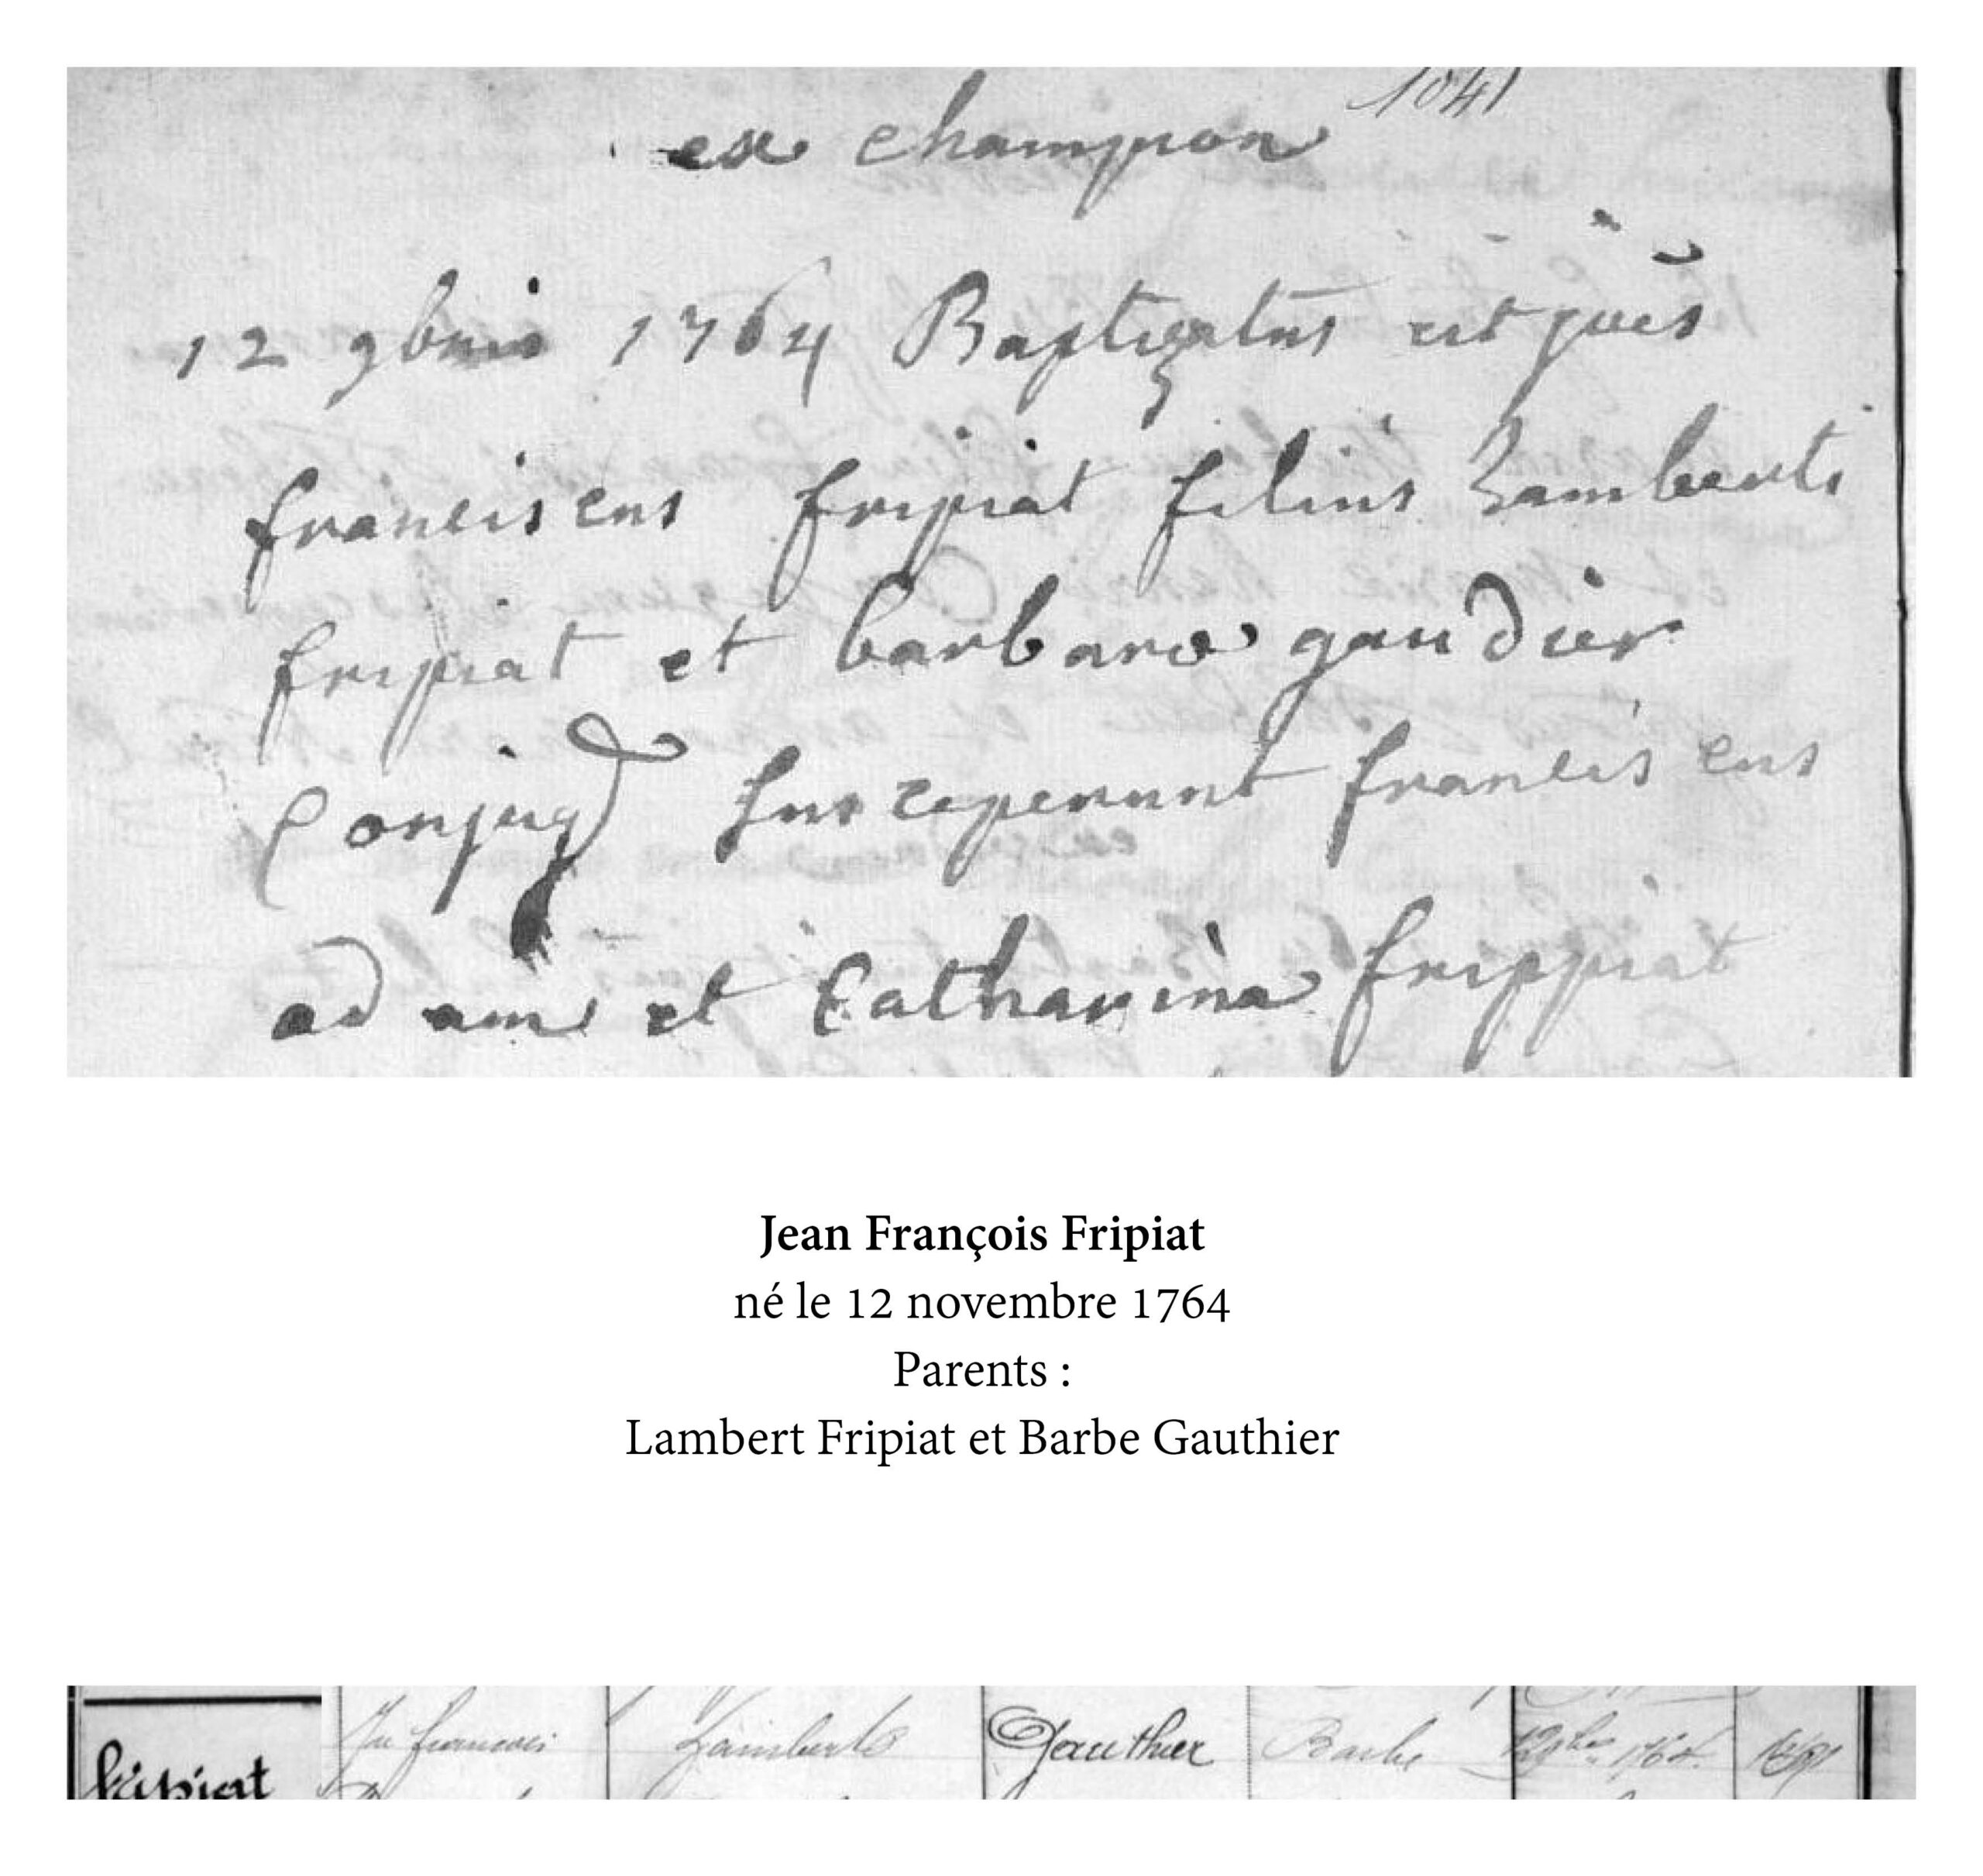 1041
ex champion
12 9bris 1764 Baptizatus est joẽs
franciscus fripiat filius Lamberti
fripiat et barbara gaudier
Conjug susceperunt franciscus
adam et Catharina frippiat
Jean François Fripiat
né le 12 novembre 1764
Parents :
Lambert Fripiat et Barbe Gauthier
fripiat Jn francois Lambert Gauthier Barbe 12 9bre 1764